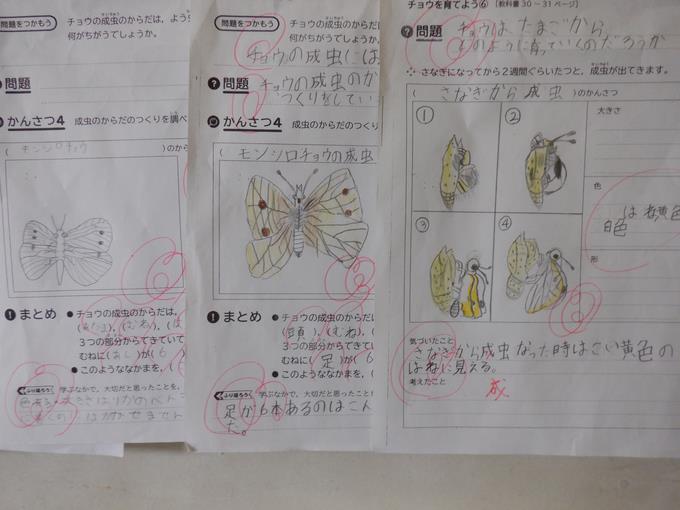 問題をつかもう
チョウの成虫のからだは，よう
何がちがうでしょうか。
問題
かんさつ4 成虫のからだのつくりを調べ
( モンシロチョウ )のから
まとめ
●チョウの成虫のからだは，
(あたま)，(むね)，(は
3つの部分からできてい
むねに(あし)が(6
●このようななかまを，(
ふり返ろう 学ぶなかで，大切だと思ったことを，
問題をつかもう
チョウの成虫のからだは，
何がちがうでしょうか。
チョウの成虫には
問題
チョウの成虫のか
つくりをしてい
かんさつ4 成虫のからだのつくり
( モンシロチョウの成虫
まとめ
●チョウの成虫のからだは，
(頭)，(むね)，(
3つの部分からできて
むねに(足)が(6
●このようななかまを，(
ふり返ろう 学ぶなかで，大切だと思ったこと
足が6本あるのはこん
た。
チョウを育てよう⑥ [教科書30～31ページ]
問題
チョウは、たまごから
どのように育っていくのだろうか
さなぎになってから2週間ぐらいたつと，成虫が出てきます。
( さなぎから成虫 )のかんさつ
① ②
③ ④
大きさ
色
は黄色
白色
形
気づいたこと
さなぎから成虫なった時はこい黄色の
はねに見える。
考えたこと